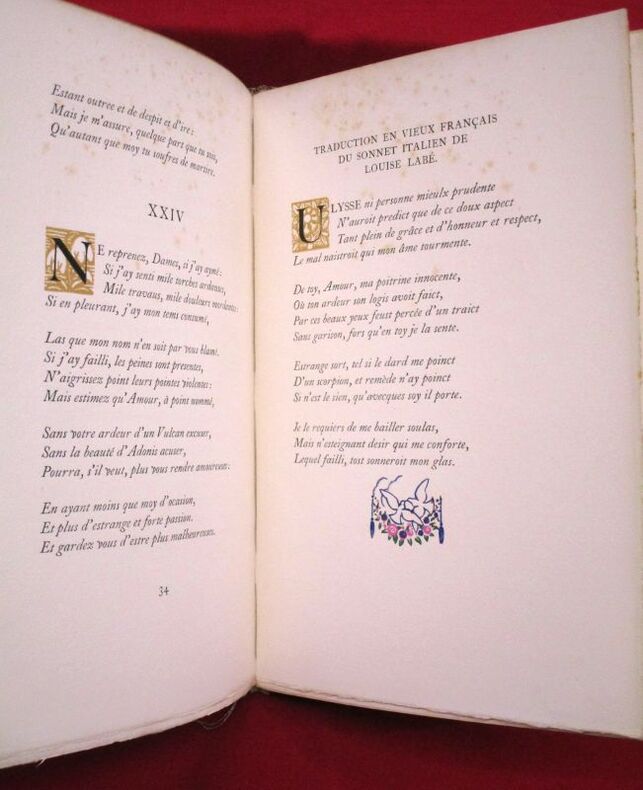 Estant outree et de despit et d'ire:
Mais je m'assure, quelque part que tu sois,
Qu'autant que moy tu soufres de martire.
XXIV
NE reprenez, Dames, si j'ay aymé:
Si j'ay senti mile torches ardentes,
Mile travaus, mile douleurs mordentes:
Si en pleurant, j'ay mon tems consumé,
Las que mon nom n'en soit par vous blamé.
Si j'ay failli, les peines sont presentes,
N'aigrissez point leurs pointes violentes:
Mais estimez qu'Amour, à point nommé,
Sans votre ardeur d'un Vulcan excuser,
Sans la beauté d'Adonis acuser,
Pourra, s'il veut, plus vous rendre amoureuses:
En ayant moins que moy d'ocasion,
Et plus d'estrange et forte passion.
Et gardez vous d'estre plus malheureuses.
34
TRADUCTION EN VIEUX FRANÇAIS
DU SONNET ITALIEN DE
LOUISE LABÉ.
ULYSSE ni personne mieulx prudente
N'auroit predict que de ce doux aspect
Tant plein de grâce et d'honneur et respect,
Le mal naistroit qui mon âme tourmente.
De toy, Amour, ma poitrine innocente,
Où ton ardeur son logis avoit faict,
Par ces beaux yeux feust percée d'un traict
Sans garison, fors qu'en toy je la sente.
Estrange sort, tel si le dard me poinct
D'un scorpion, et remède n'ay poinct
Si n'est le sien, qu'avecques soy il porte.
Je le requiers de me bailler soulas,
Mais n'esteignant desir qui me conforte,
Lequel failli, tost sonneroit mon glas.